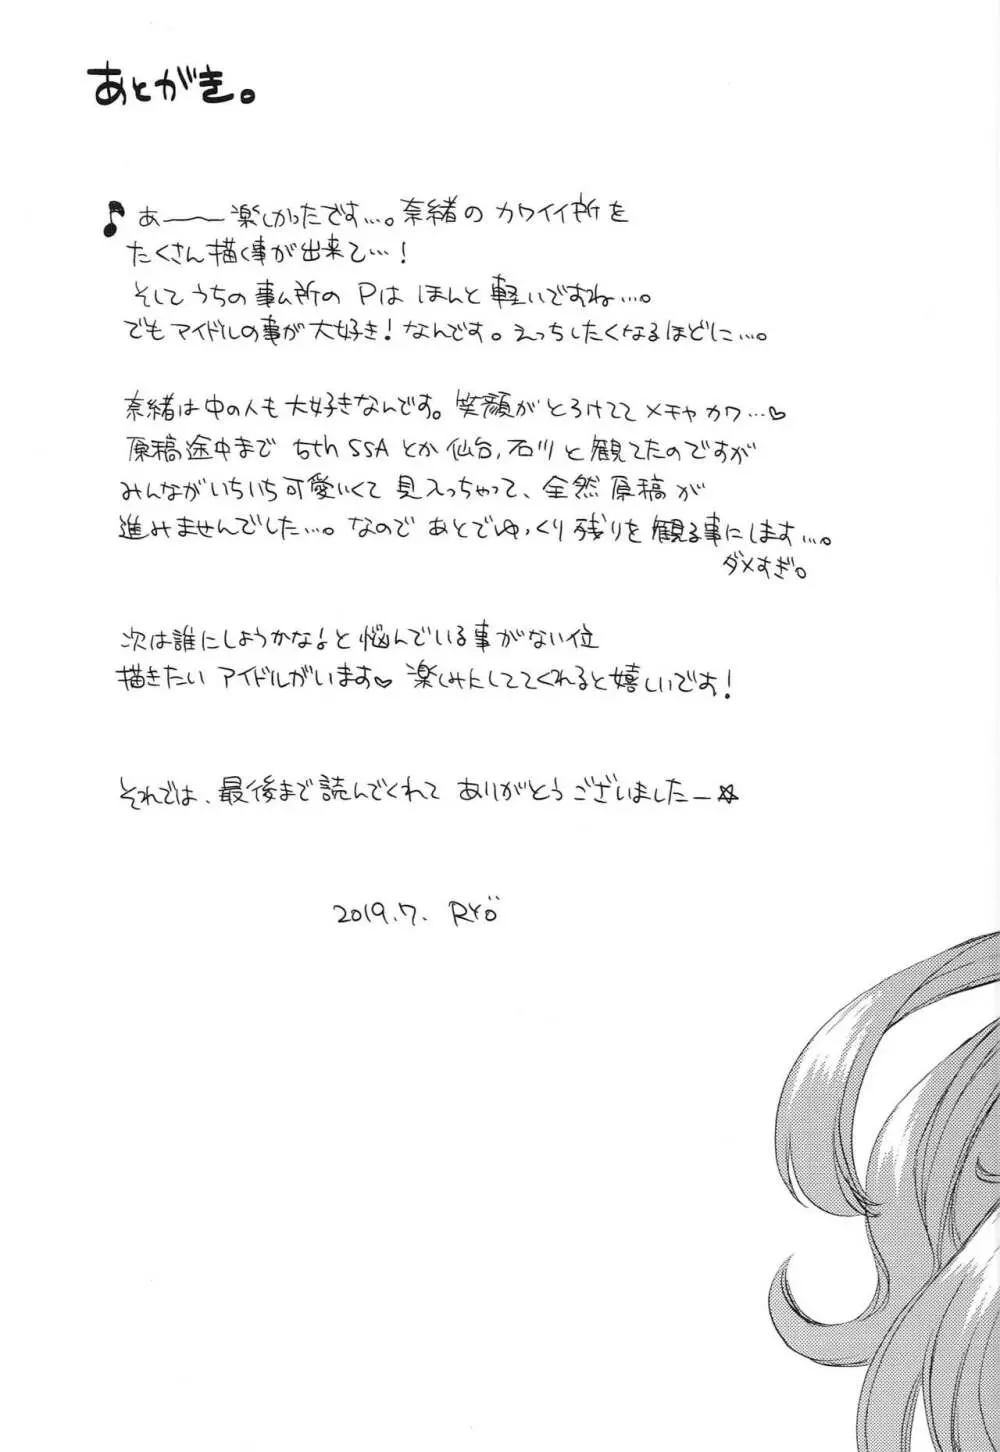 あとがき。
♪ あー〜楽しかったです…。奈緒のカワイイ所を
たくさん描く事が出来て…!
そしてうちの事ム所のPはほんと軽いですね…。
でもアイドルの事が大好き!なんです。えっちしたくなるほどに…。
奈緒は中の人も大好きなんです。笑顔がとろけててメチャカワ…♡
原稿途中まで 5th SSAとか仙台,石川と観てたのですが
みんながいちいち可愛いくて見えっちゃって、全然原稿が
進みませんでした…。なのであとでゆっくり残りを観る事にします…。
ダメすぎ。
次は誰にしようかな♪と悩んでいる事がない位
描きたいアイドルがいます♡ 楽しみにしててくれると嬉しいです!
それでは、最後まで読んでくれてありがとうございましたー☆
2019.7. RYÖ